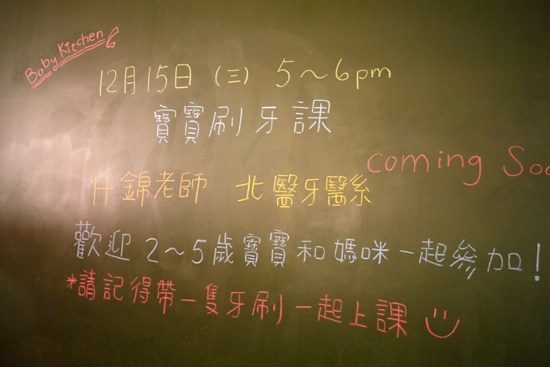 Baby Kitchen
12月15日 (三) 5～6pm
寶寶刷牙課
coming Soo
什錦老師 北醫牙醫系
歡迎2～5歲寶寶和媽咪一起參加!
*請記得帶一隻牙刷一起上課